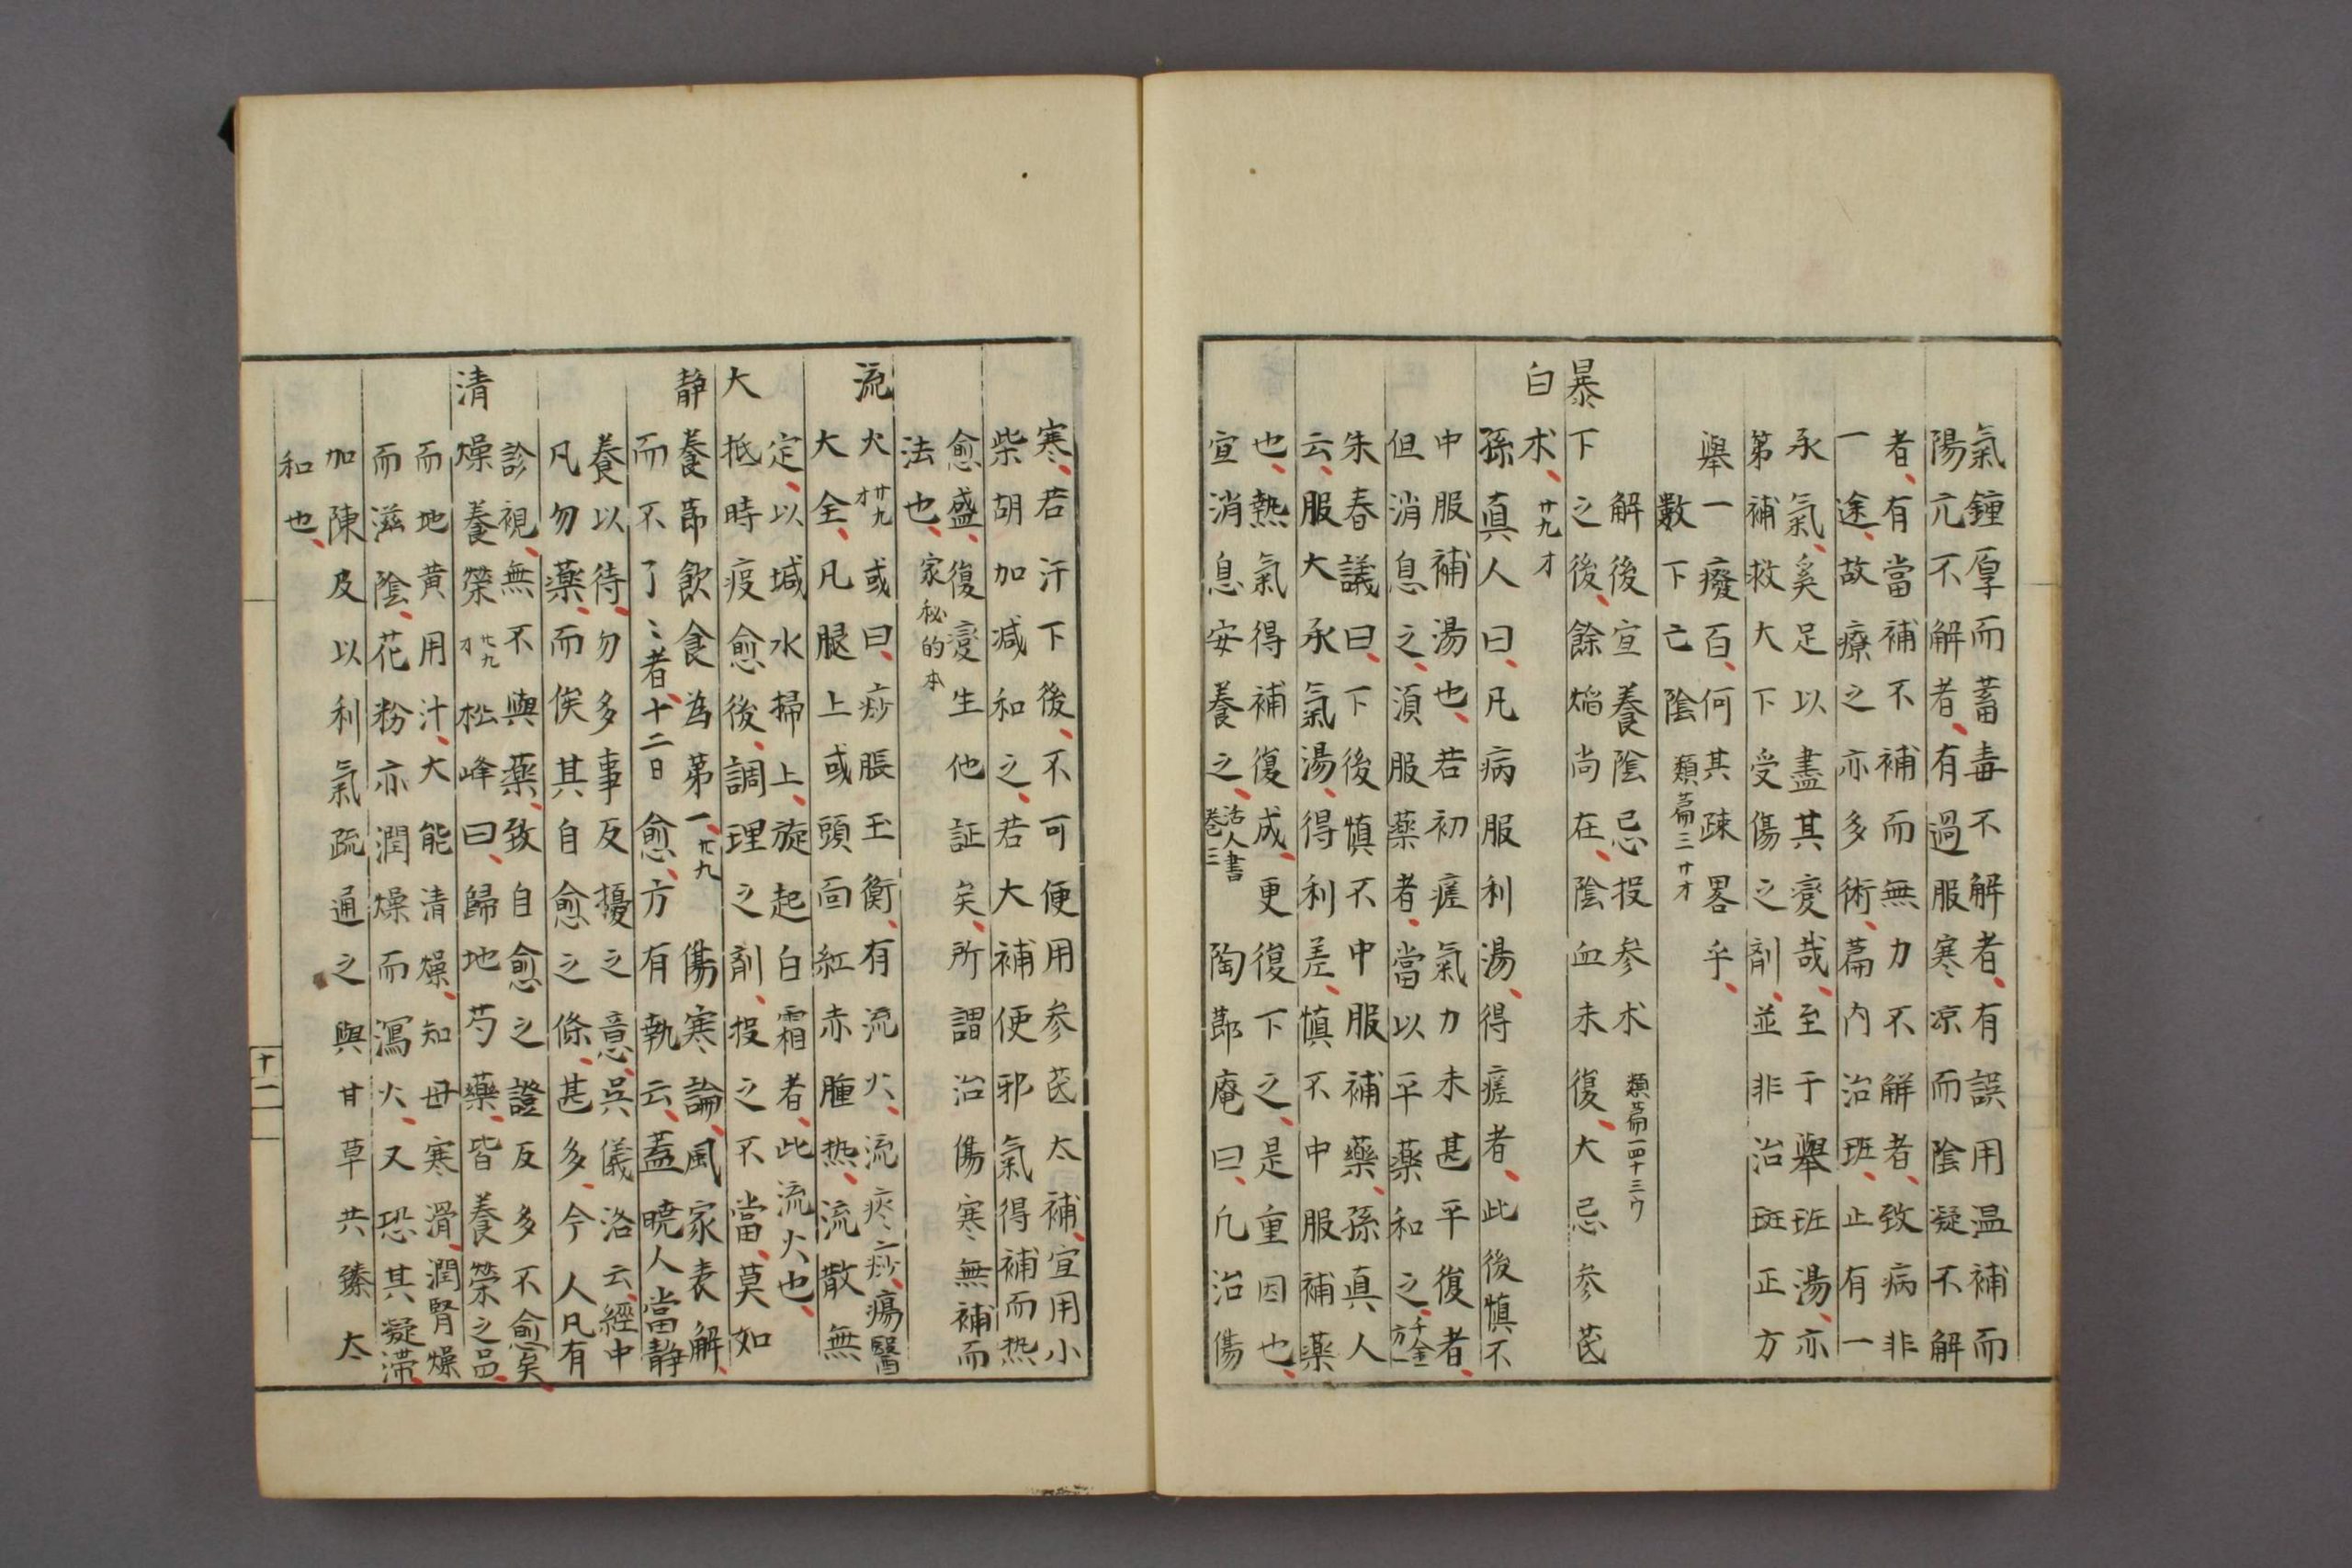 氣鍾厚而蓄毒不解者、有誤用温補而
陽亢不解者、有過服寒凉而陰凝不解
者、有當補不補而無力不解者、致病非
一途、故療之亦多術、篇内治班、止有一
承氣、奚足以盡其變哉、至于舉班湯、亦
第補救大下受傷之剤、並非治斑正方
舉一癈百、何其疎畧乎、
數下亡陰 類篇三廿オ
解後宣養陰忌投参术 類篇一四十三ウ
暴下之後、餘焰尚在、陰血未復、大忌参芪
白术、廿九オ
孫真人曰、凡病服利湯、得瘥者、此後慎不
中服補湯也、若初瘥氣力未甚平復者、
但消息之、須服藥者、當以平藥和之、千金方一
朱春議曰、下後慎不中服補藥、孫真人
云、服大承氣湯、得利差、慎不中服補藥
也、熱氣得補復成、更復下之、是重因也、
宣消息安養之、活人書卷三 陶節庵曰、凢治傷
寒、若汗下後、不可便用参芪太補、宜用小
柴胡加减和之、若大補便邪氣得補而热
愈盛、復變生他証矣、所謂治傷寒無補而
法也、家秘的本
流火 廿九オ 或曰、痧脹玉衡、有流火、流疼之痧、瘍醫
大全、凡腿上或頭面紅赤腫热、流散無
定、以堿水掃上、旋起白霜者、此流火也、
大抵時疫愈後、調理之剤、投之不當、莫如
静養節飲食為第一、廿九 傷寒論、風家表解、
而不了〻者、十二日愈、方有執云、蓋暁人當静
養以待、勿多事反擾之意、吳儀洛云、經中
凡勿藥、而俟其自愈之條、甚多、今人凡有
診視、無不與藥、致自愈之證反多不愈矣、
清燥養榮 廿九オ 松峰曰、歸地芍藥、皆養榮之品、
而地黄用汁、大能清燥、知母寒滑、潤腎燥
而滋陰、花粉亦潤燥而瀉火、又恐其凝滞、
加陳皮以利氣疏通之、與甘草共臻太
和也、
十一